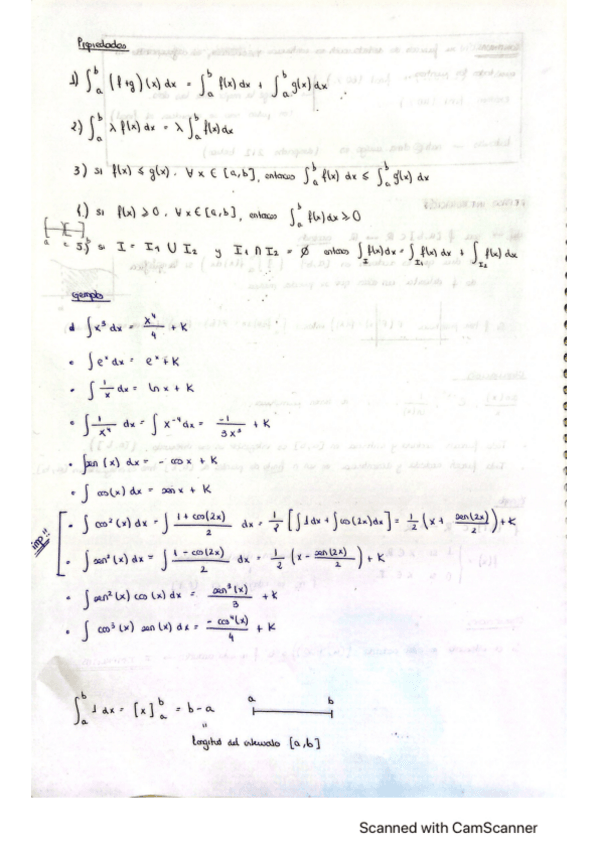 Propiedades
1) ∫_a^b (f+g)(x) dx = ∫_a^b f(x) dx + ∫_a^b g(x) dx
2) ∫_a^b λ f(x) dx = λ ∫_a^b f(x) dx
3) si f(x) ≤ g(x). ∀x ∈ [a,b], entonces ∫_a^b f(x) dx ≤ ∫_a^b g(x) dx
4.) si f(x) ≥ 0. ∀x ∈ [a,b], entonces ∫_a^b f(x) dx ≥ 0
a c b
5) si I = I₁ ∪ I₂ y I₁ ∩ I₂ = ∅ entonces ∫_I f(x) dx = ∫_I₁ f(x) dx + ∫_I₂ f(x) dx
Ejemplo
• ∫ x³ dx = x⁴/4 + K
• ∫ eˣ dx = eˣ + K
• ∫ 1/x dx = ln x + K
• ∫ 1/x⁴ dx = ∫ x⁻⁴ dx = -1/3x³ + K
• ∫ sen (x) dx = - cos x + K
• ∫ cos(x) dx = sen x + K
imp!!
• ∫ cos²(x) dx = ∫ (1 + cos(2x))/2 dx = 1/2 [∫ 1 dx + ∫ cos(2x) dx] = 1/2 (x + sen(2x)/2) + K
• ∫ sen²(x) dx = ∫ (1 - cos(2x))/2 dx = 1/2 (x - sen(2x)/2) + K
• ∫ sen²(x) cos(x) dx = sen³(x)/3 + K
• ∫ cos³(x) sen(x) dx = - cos⁴(x)/4 + K
∫_a^b 1 dx = [x]_a^b = b - a
a b
"
longitud del intervalo [a,b]
Scanned with CamScanner